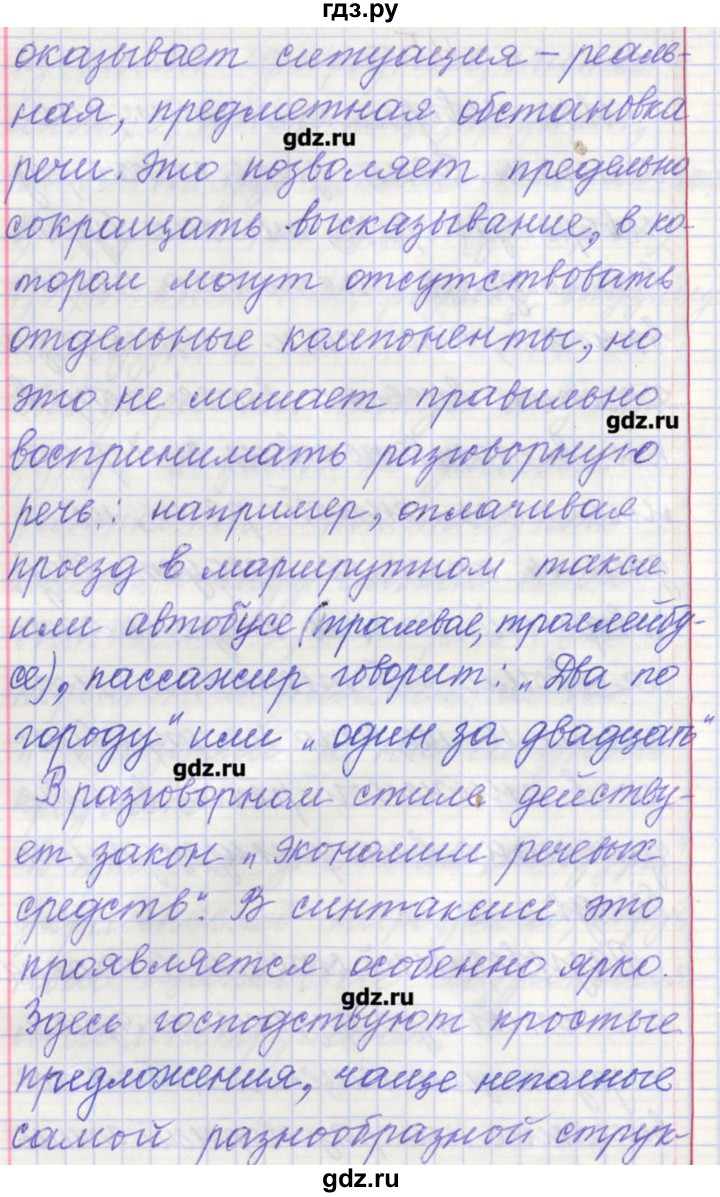 гдз.ру
оказывает ситуация – реаль-
ная, предметная обстановка
gdz.ru
речи. Это позволяет предельно
сокращать высказывание, в ко-
тором могут отсутствовать
отдельные компоненты, но
это не мешает правильно
gdz.ru
воспринимать разговорную
речь: например, оплачивая
проезд в маршрутном такси
или автобусе (трамвае, троллейбу-
се), пассажир говорит: „Два по
городу" или „один за двадцать"
gdz.ru
В разговорном стиле действу-
ет закон „экономии речевых
средств". В синтаксисе это
проявляется особенно ярко.
gdz.ru
Здесь господствуют простые
предложения, чаще неполные
самой разнообразной струк-
gdz.ru